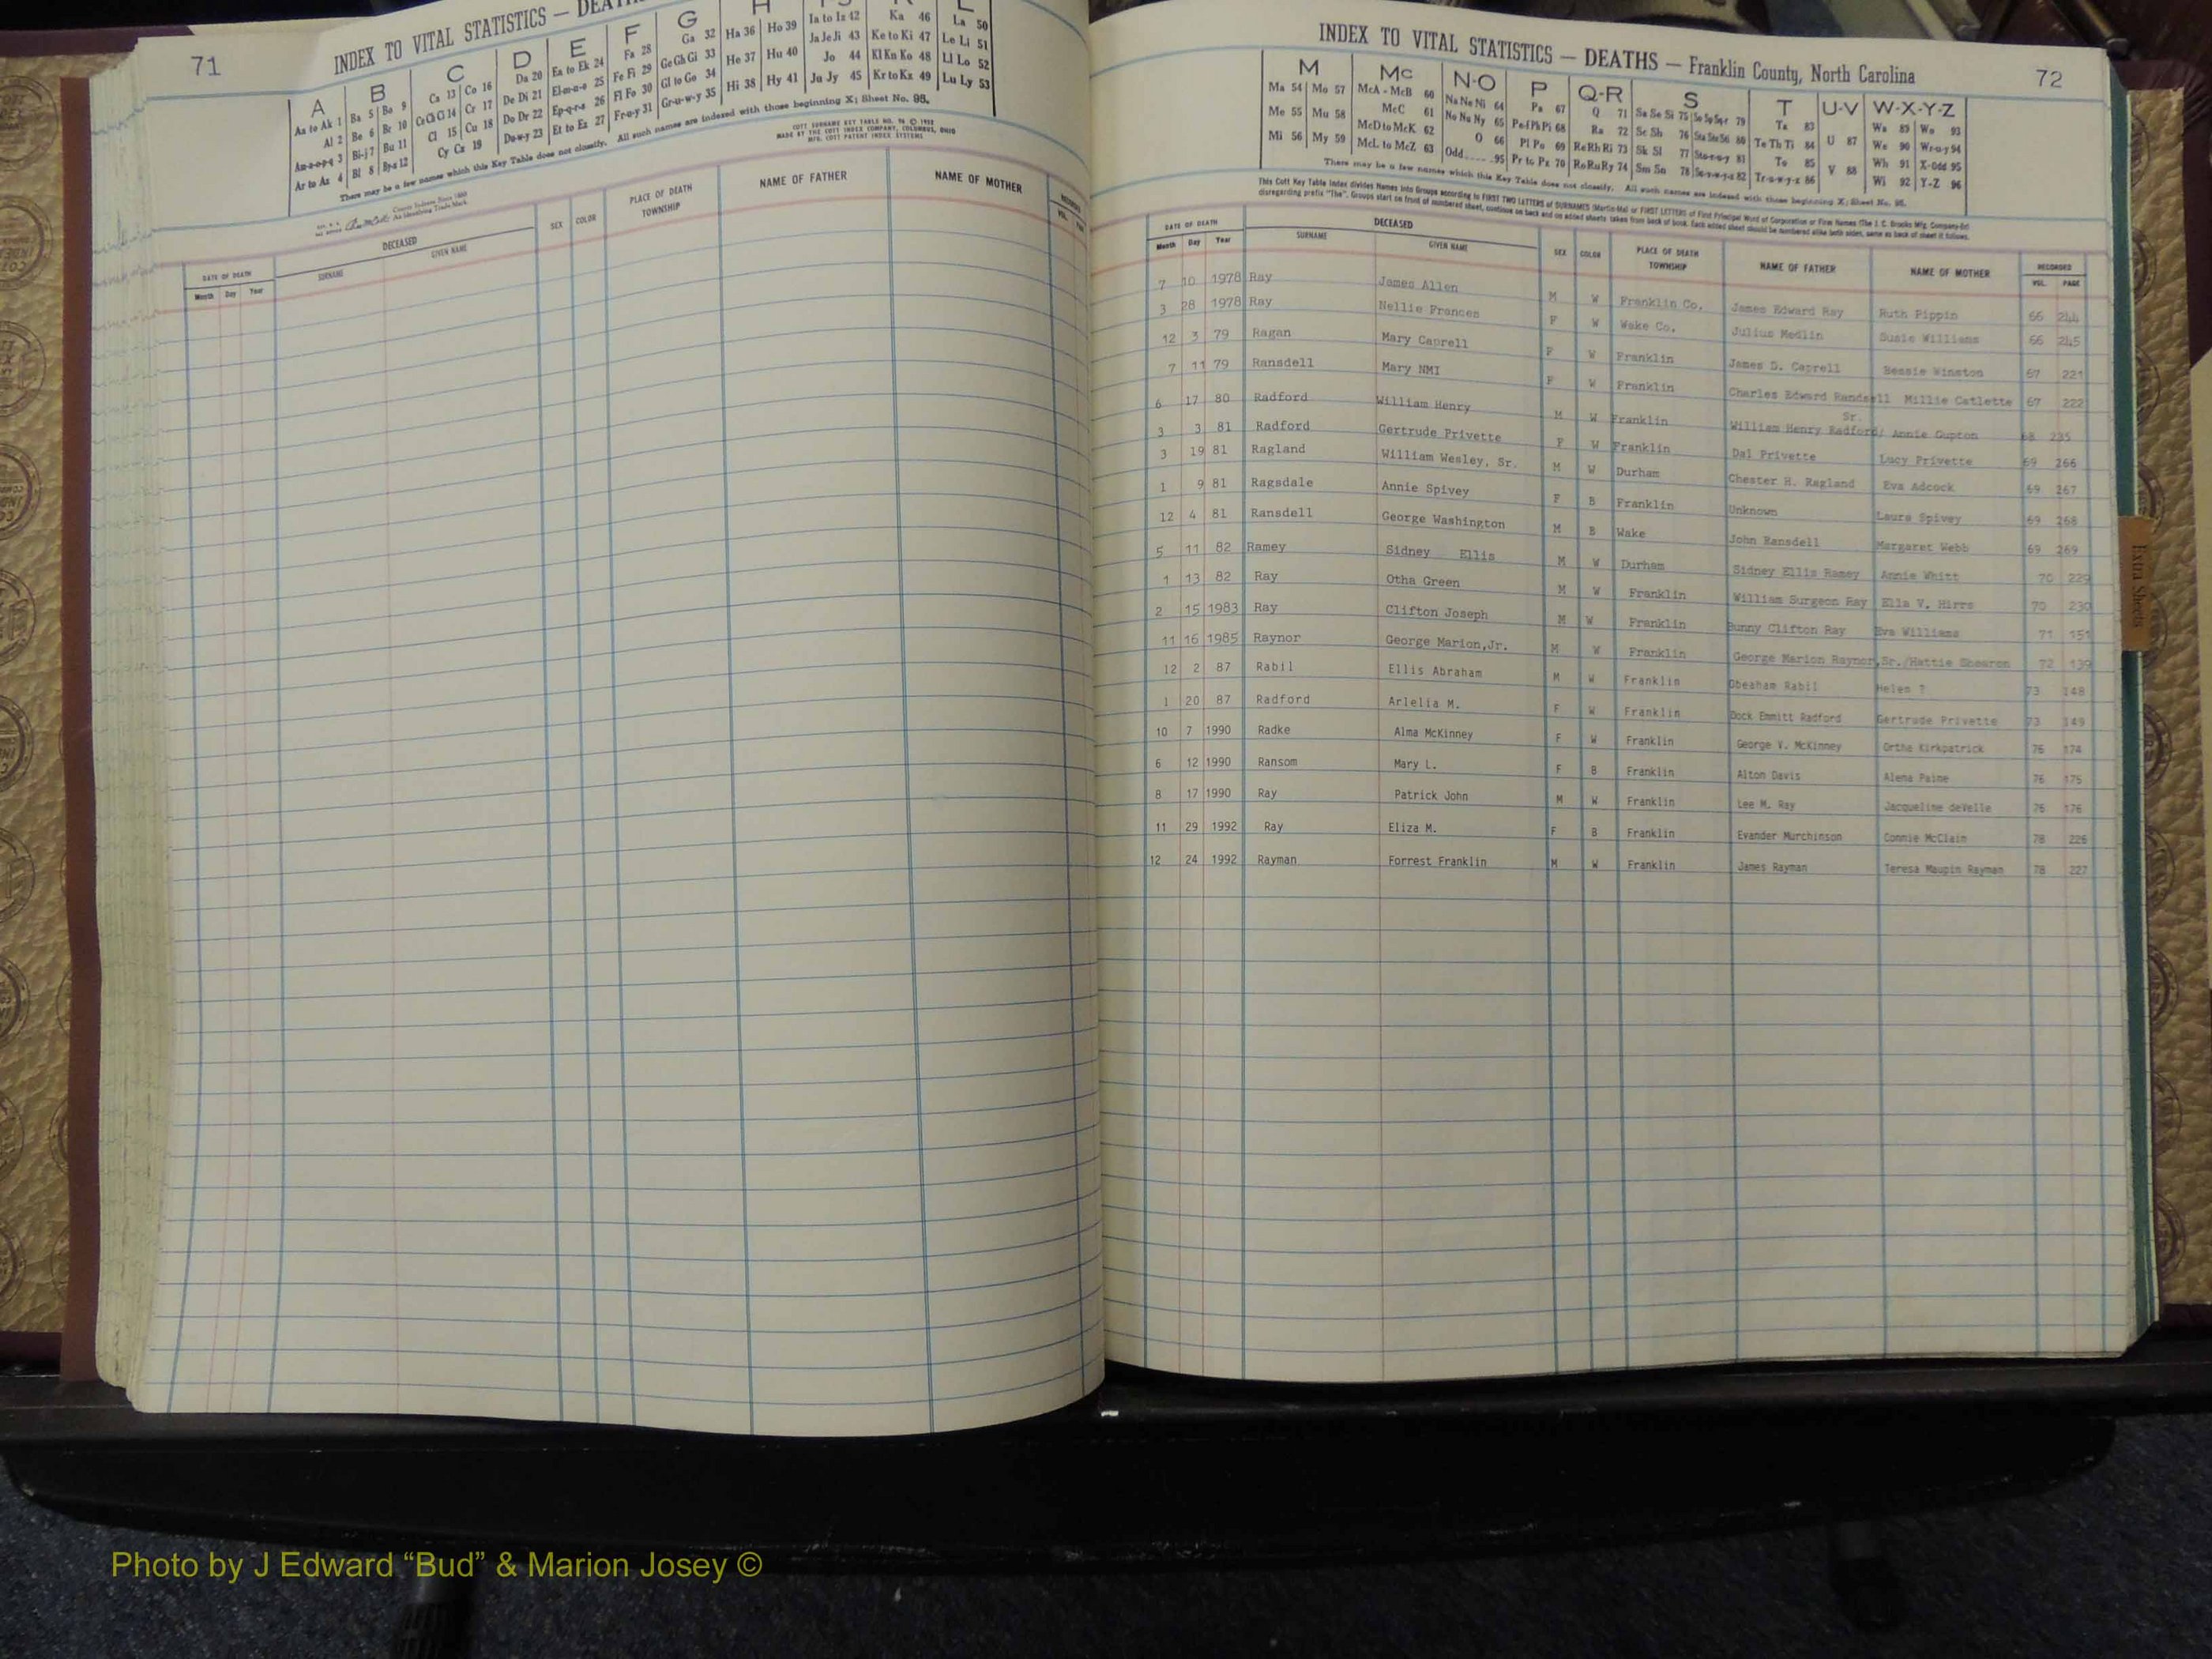 71
INDEX TO VITAL STATISTICS — DEATHS
A B C D E F G H
Aa to Ak 1 Ba 5 Bo 9 Ca 13 Co 16 Da 20 Ea to Ek 24 Fa 28 Ga 32 Ha 36 Ho 39 Ia to Iz 42 Ka 46 La 50
Al 2 Be 6 Br 10 Ce Ch Ci 14 Cr 17 De Di 21 El-m-n-o 25 Fe Fi 29 Ge Gh Gi 33 He 37 Hu 40 Ja Je Ji 43 Ke to Ki 47 Le Li 51
Am-n-o-p-q 3 Bi-j 7 Bu 11 Cl 15 Cu 18 Do Dr 22 Ep-q-r-s 26 Fl Fo 30 Gl to Go 34 Hi 38 Hy 41 Jo 44 Kl Kn Ko 48 Ll Lo 52
Ar to Az 4 Bl 8 By-z 12 Cy Cz 19 Du-w-y 23 Et to Ez 27 Fr-u-y 31 Gr-u-w-y 35 Ju Jy 45 Kr to Kz 49 Lu Ly 53
There may be a few names which this Key Table does not classify. All such names are indexed with those beginning X; Sheet No. 95.
COTT SURNAME KEY TABLE NO. 96 © 1952
MADE BY THE COTT INDEX COMPANY, COLUMBUS, OHIO
MFG. COTT PATENT INDEX SYSTEMS
County Indexes Since 1888
An Identifying Trade Mark
DATE OF DEATH DECEASED SEX COLOR PLACE OF DEATH TOWNSHIP NAME OF FATHER NAME OF MOTHER RECORDED
Month Day Year SURNAME GIVEN NAME VOL. PAGE
INDEX TO VITAL STATISTICS — DEATHS — Franklin County, North Carolina
72
M Mc N-O P Q-R S T U-V W-X-Y-Z
Ma 54 Mo 57 McA - McB 60 Na Ne Ni 64 Pa 67 Q 71 Sa Se Si 75 So Sp Sq-r 79 Ta 83 Wa 89 Wo 93
Me 55 Mu 58 McC 61 No Nu Ny 65 Pe-f Ph Pi 68 Ra 72 Sc Sh 76 Sta Ste St6 80 Te Th Ti 84 U 87 We 90 Wr-u-y 94
Mi 56 My 59 McD to McK 62 O 66 Pl Po 69 Re Rh Ri 73 Sk Sl 77 Sto-r-u-y 81 To 85 Wh 91 X-Odd 95
McL to McZ 63 Odd......95 Pr to Pz 70 Ro Ru Ry 74 Sm Sn 78 Su-v-w-y-z 82 Tr-u-w-y-z 86 V 88 Wi 92 Y-Z 96
There may be a few names which this Key Table does not classify. All such names are indexed with those beginning X; Sheet No. 95.
This Cott Key Table Index divides Names into Groups according to FIRST TWO LETTERS of SURNAMES (Martin-Ma) or FIRST LETTERS of First Principal Word of Corporation or Firm Names (The J. C. Brooks Mfg. Company-Br)
disregarding prefix "The". Groups start on front of numbered sheet, continue on back and on added sheets taken from back of book. Each added sheet should be numbered alike both sides, same as back of sheet it follows.
DATE OF DEATH DECEASED SEX COLOR PLACE OF DEATH TOWNSHIP NAME OF FATHER NAME OF MOTHER RECORDED
Month Day Year SURNAME GIVEN NAME VOL. PAGE
7 10 1978 Ray James Allen M W Franklin Co. James Edward Ray Ruth Pippin 66 244
3 28 1978 Ray Nellie Frances F W Wake Co. Julius Medlin Susie Williams 66 245
12 3 79 Ragan Mary Caprell F W Franklin James D. Caprell Bessie Winston 67 221
7 11 79 Ransdell Mary NMI F W Franklin Charles Edward Randsell Millie Catlette 67 222
6 17 80 Radford William Henry M W Franklin William Henry Radford, Sr. Annie Gupton 68 235
3 3 81 Radford Gertrude Privette F W Franklin Dal Privette Lucy Privette 69 266
3 19 81 Ragland William Wesley, Sr. M W Durham Chester H. Ragland Eva Adcock 69 267
1 9 81 Ragsdale Annie Spivey F B Franklin Unknown Laura Spivey 69 268
12 4 81 Ransdell George Washington M B Wake John Ransdell Margaret Webb 69 269
5 11 82 Ramey Sidney Ellis M W Durham Sidney Ellis Ramey Annie Whitt 70 229
1 13 82 Ray Otha Green M W Franklin William Surgeon Ray Ella V. 70 230
2 15 1983 Ray Clifton Joseph M W Franklin Bunny Clifton Ray Eva Williams 71 151
11 16 1985 Raynor George Marion,Jr. M W Franklin George Marion Raynor,Sr./Hattie Shearon 72 139
12 2 87 Rabil Ellis Abraham M W Franklin Obeaham Rabil Helen ? 73 148
1 20 87 Radford Arlelia M. F W Franklin Dock Emmitt Radford Gertrude Privette 73 149
10 7 1990 Radke Alma McKinney F W Franklin George V. McKinney Ortha Kirkpatrick 76 174
6 12 1990 Ransom Mary L. F B Franklin Alton Davis Alena Paine 76 175
8 17 1990 Ray Patrick John M W Franklin Lee M. Ray Jacqueline deVelle 76 176
11 29 1992 Ray Eliza M. F B Franklin Evander Murchinson Connie McClain 78 226
12 24 1992 Rayman Forrest Franklin M W Franklin James Rayman Teresa Maupin Rayman 78 227
Extra Sheets
Photo by J Edward “Bud” & Marion Josey ©